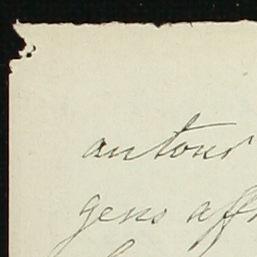 autour
gens aff